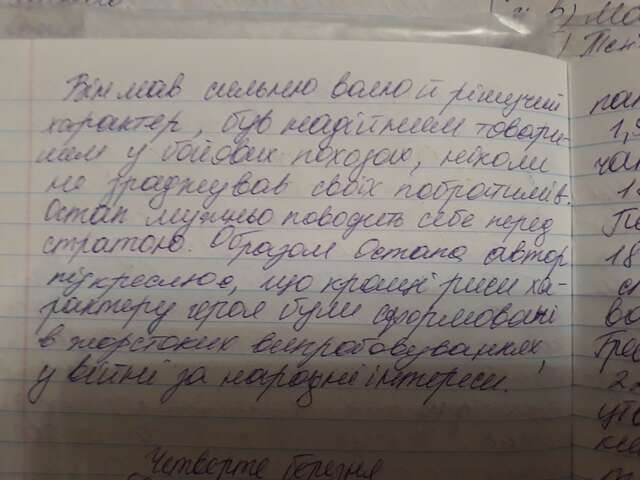 Він мав сильною волю й рішучий
характер, був надійним товари-
шем у бойових походах, ніколи
не зраджував своїх побратимів.
Остап мужньо поводить себе перед
стратою. Образом Остапа автор
підкреслює, що кращі риси ха-
рактеру героя були сформовані
в жорстоких випробовуваннях,
у війні за народні інтереси.
Четверте березня